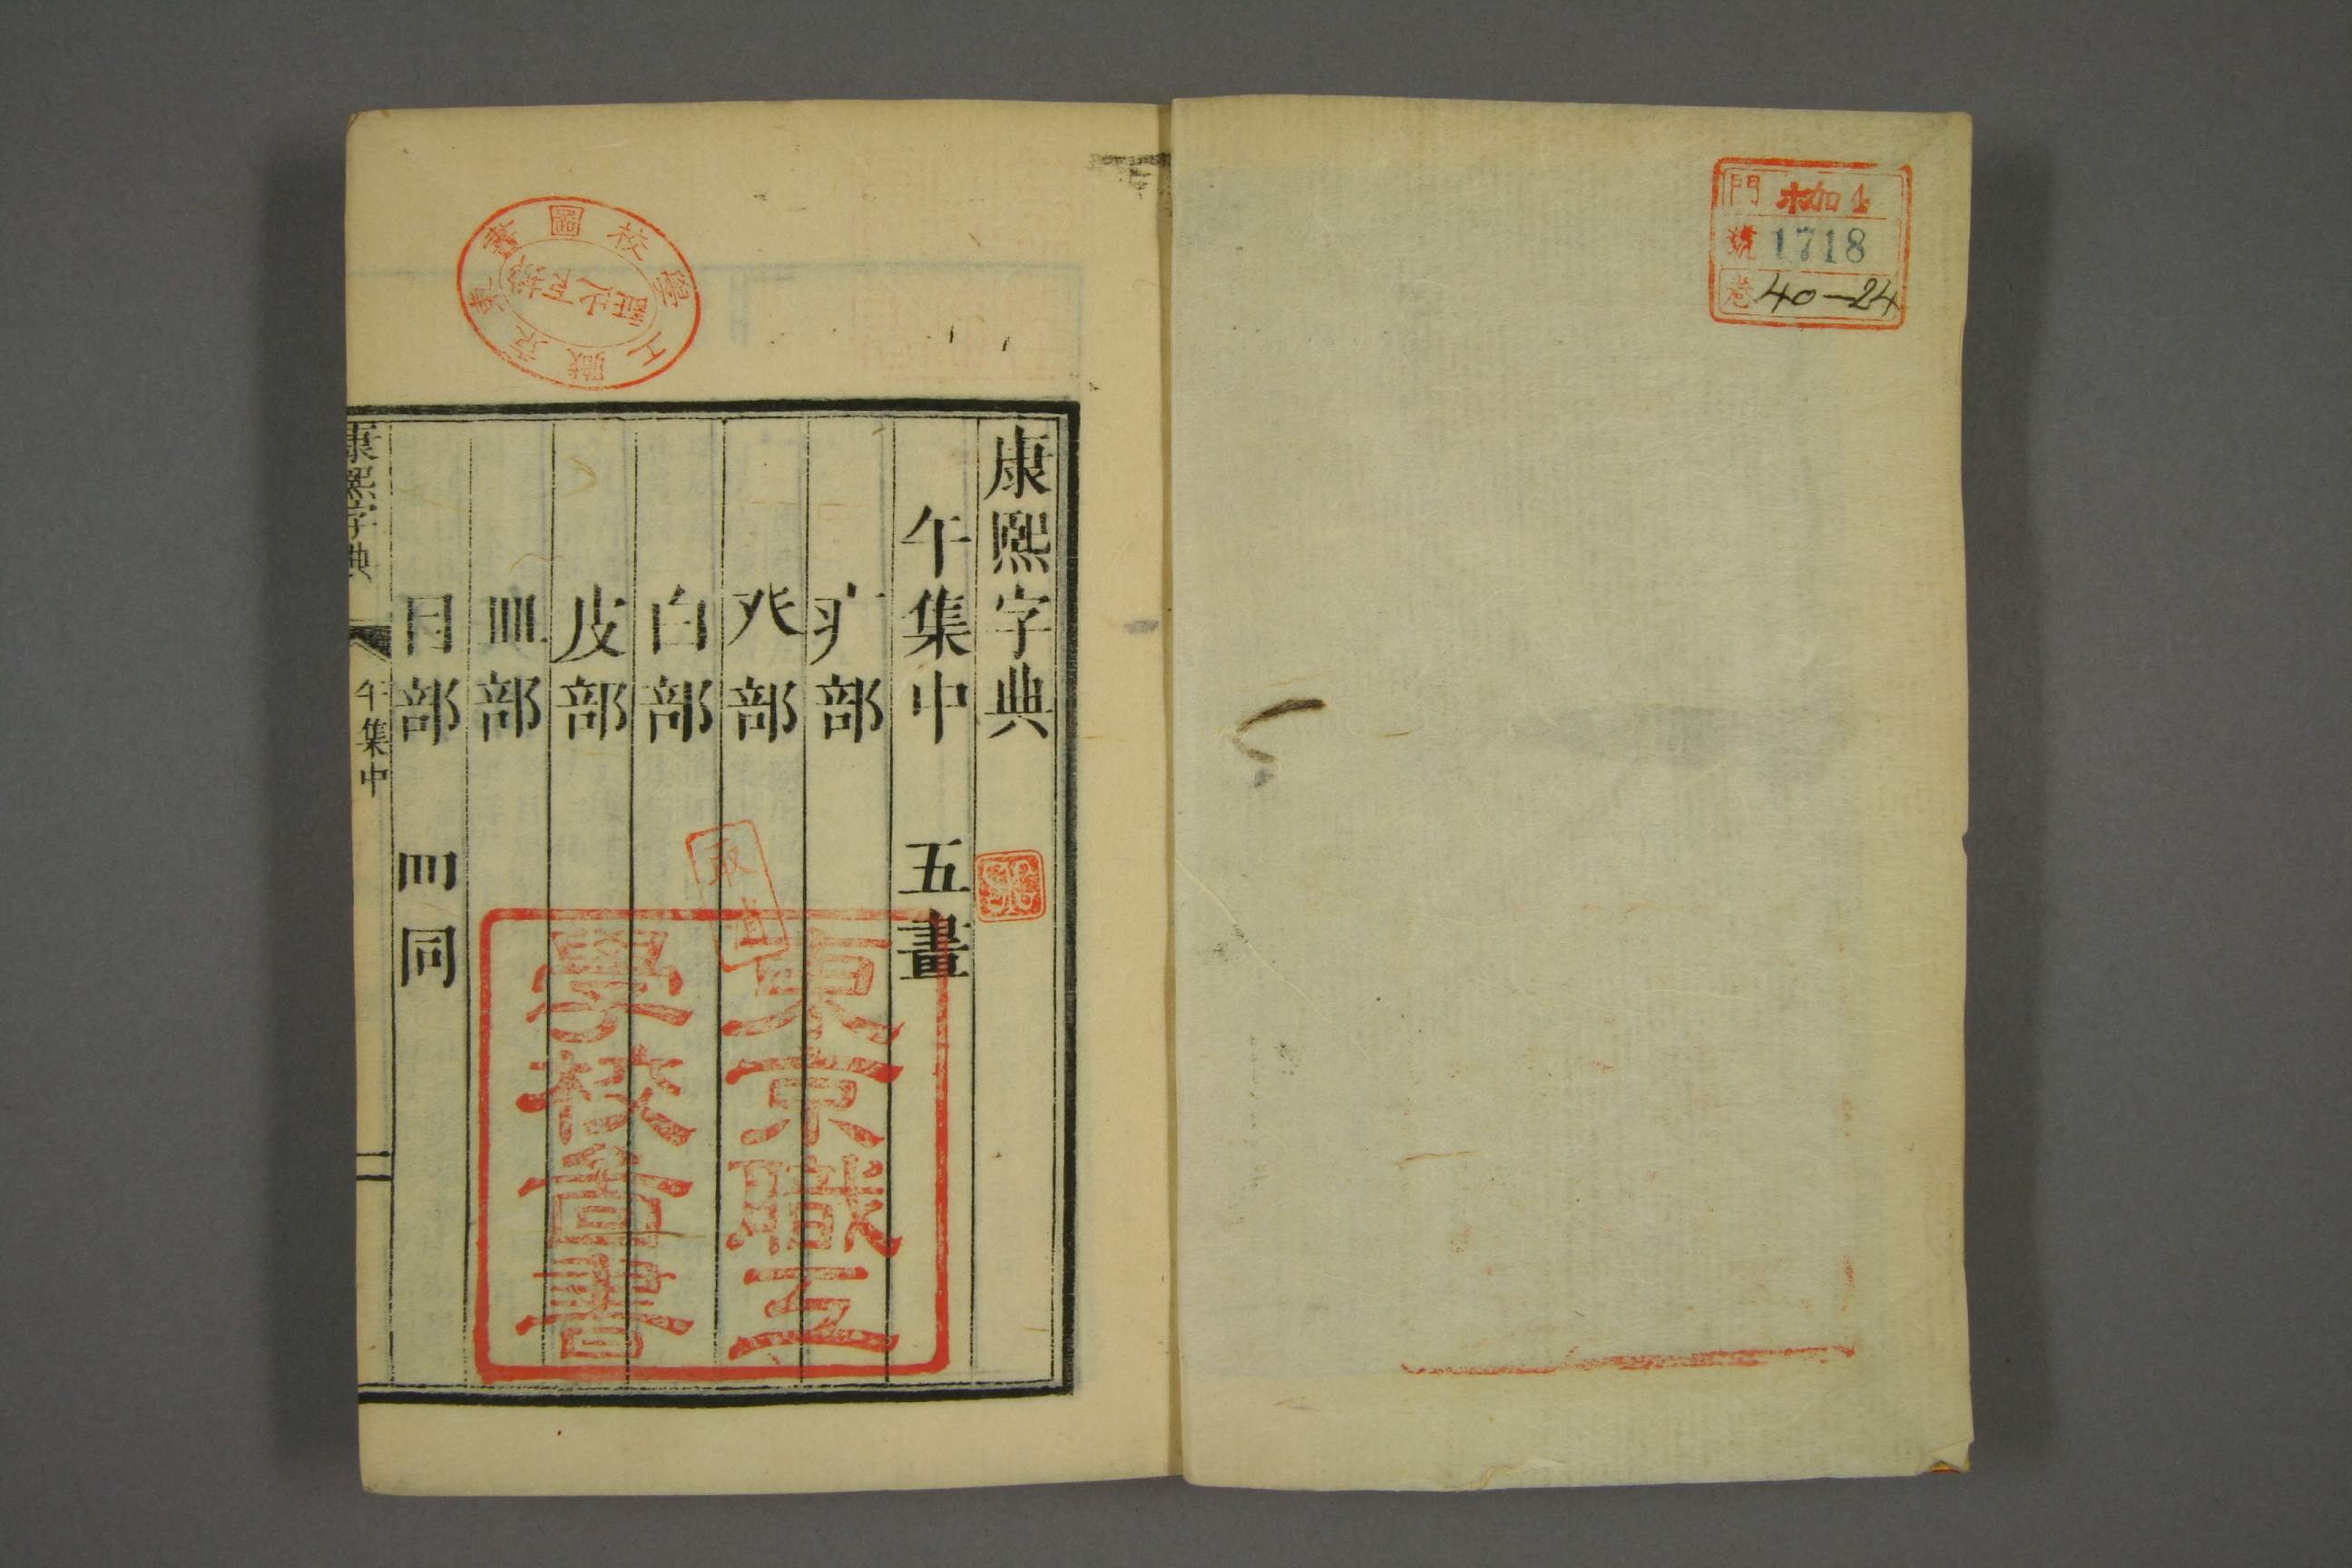 門 加1
號 1718
巻 40—24
康熙字典
午集中 五畫
疒部
癶部
白部
皮部
皿部
目部 罒同
康熙字典 午集中
東京職工
學校啚書
東京職工學校圖書